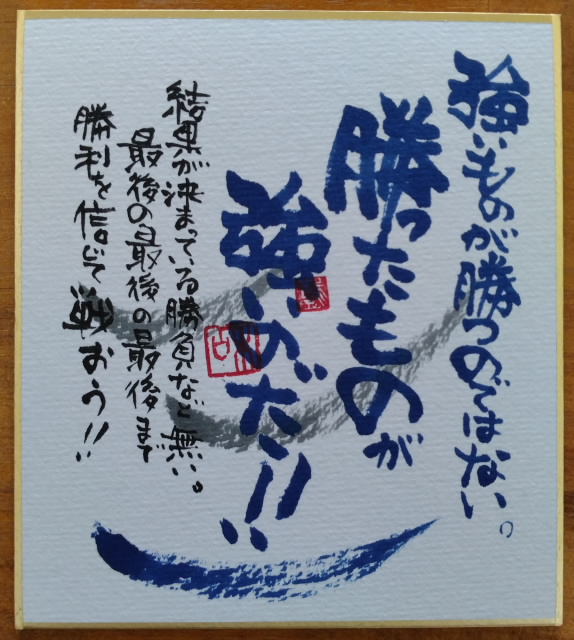 強いものが勝つのではない。
勝ったものが
強いのだ!!
結果が決まっている勝負など無い。
最後の最後の最後まで
勝利を信じて戦おう!!